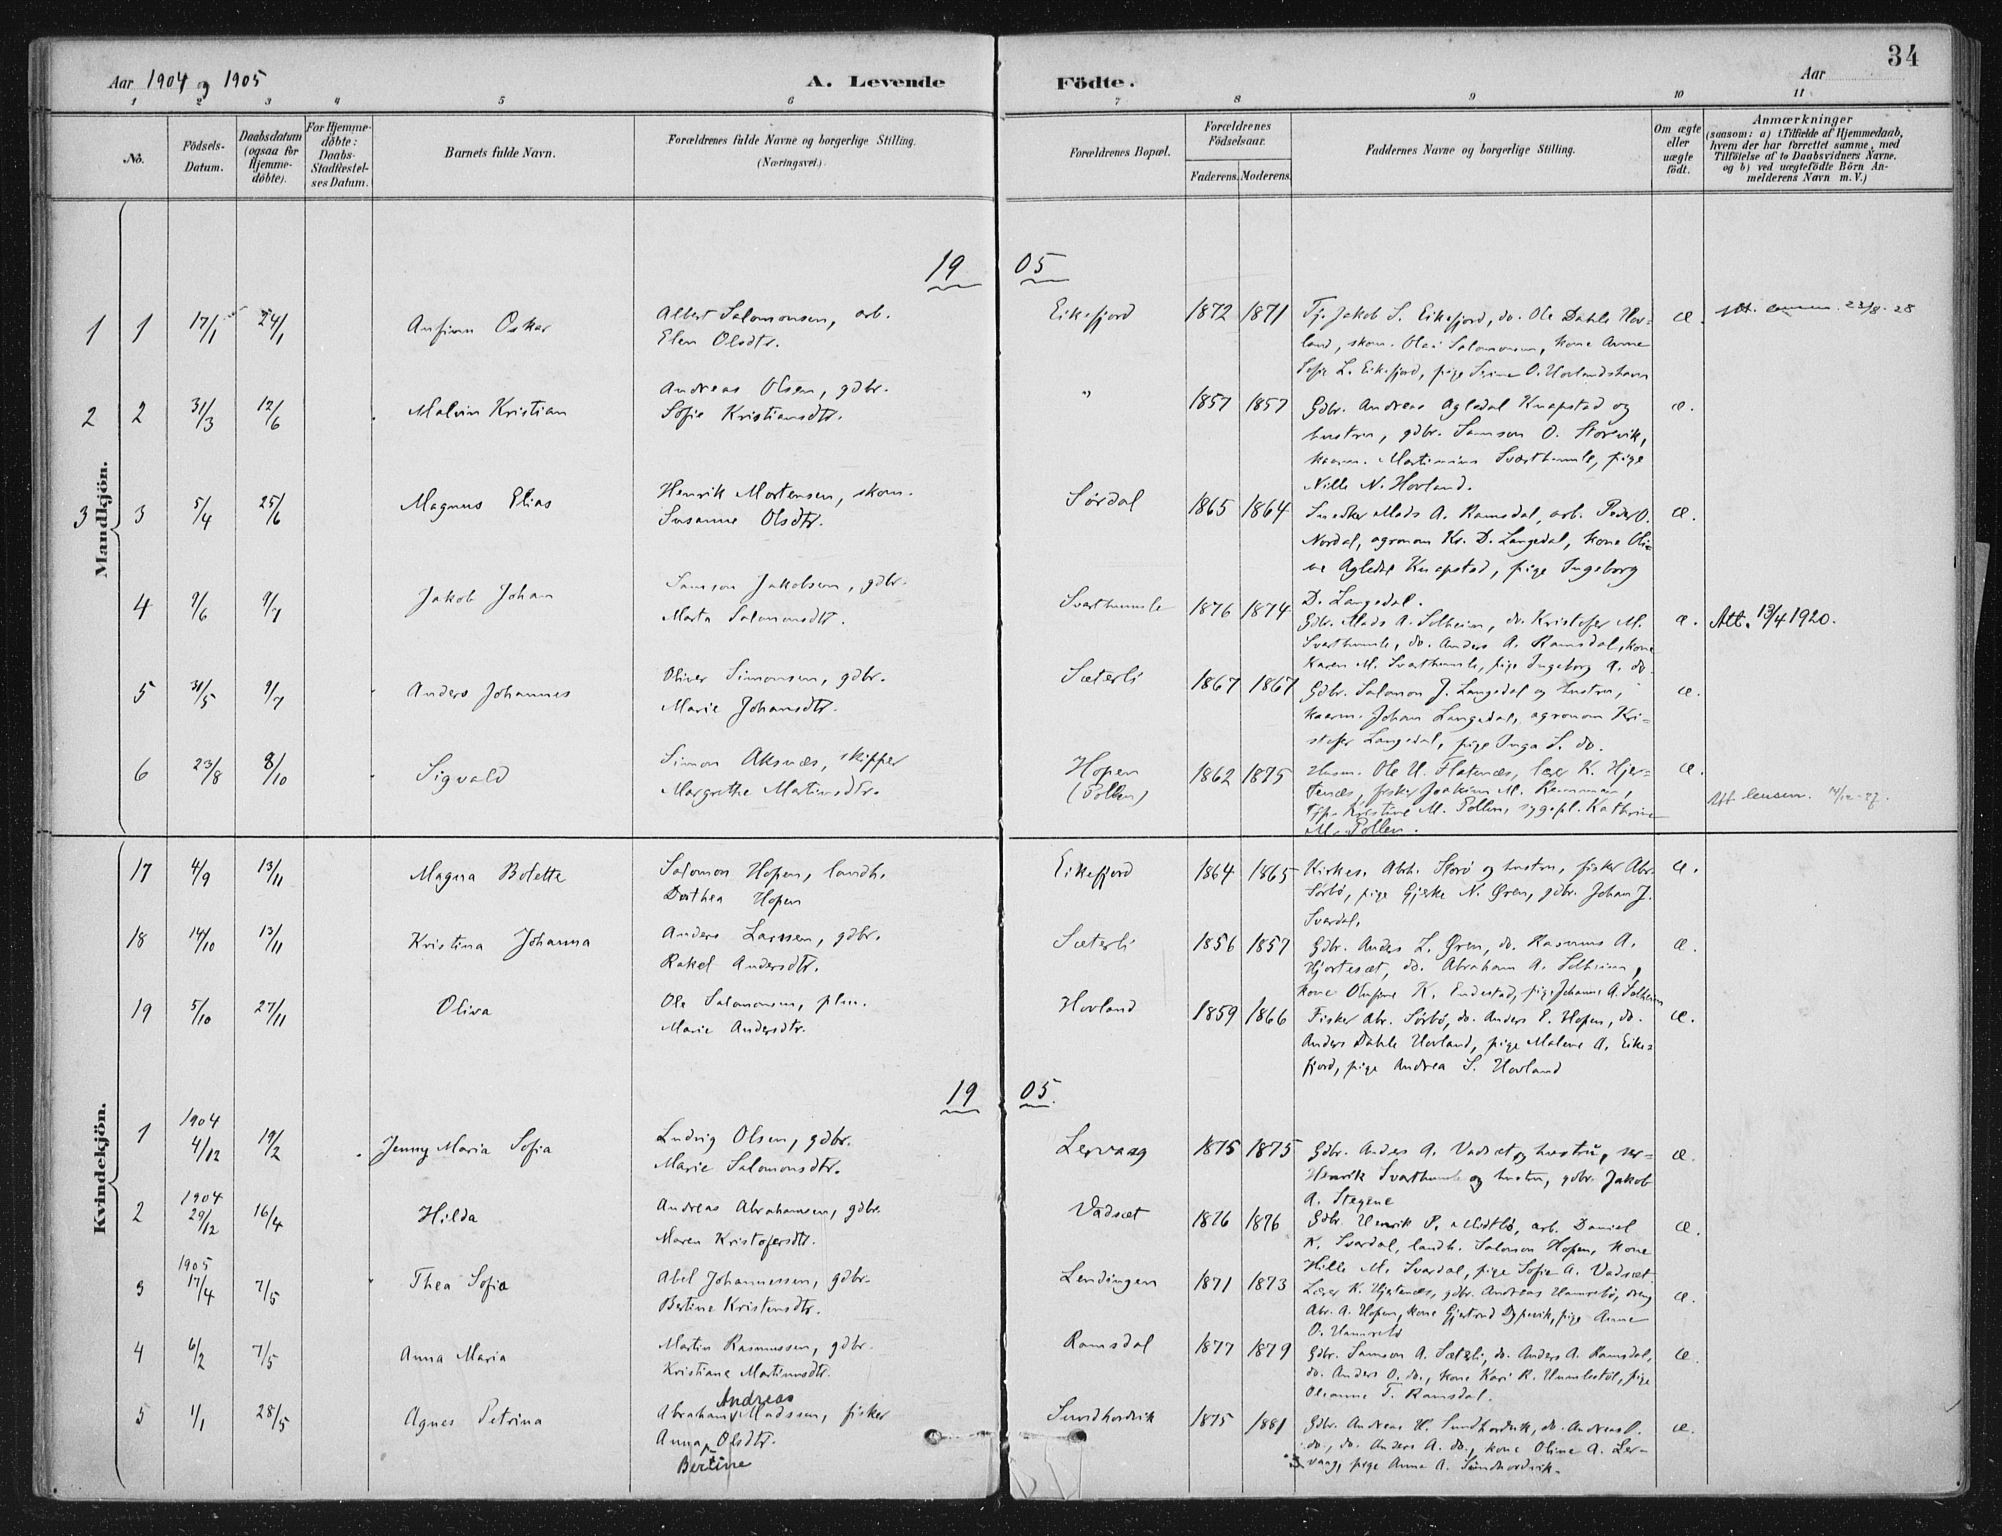 34
Aar 1904 og 1905
A. Levende Födte.
Aar
1 2 3 4 5 6 7 8 9 10 11
No.
Födsels-Datum.
Daabsdatum (ogsaa för Hjemme-döbte).
For Hjemme-döbte: Daabs-Stadfæstel-ses Datum.
Barnets fulde Navn.
Forældrenes fulde Navne og borgerlige Stilling. (Næringsvei.)
Forældrenes Bopæl.
Forældrenes Födselsaar.
Faderens. Moderens.
Faddernes Navne og borgerlige Stilling.
Om ægte eller uægte födt.
Anmærkninger
(saasom: a) i Tilfælde af Hjemmedaab, hvem der har forrettet samme, med Tilföielse af to Daabsvidners Navne, og b) ved uægtefödte Börn An-melderens Navn m. V.)
Mandkjön.
19 05
1 1 17/1 24/1 Anfinn Oskar
Albert Salomonsen, arb.
Elen Olsdtr.
Eikefjord 1872 1871
Tj. Jakob S. Eikefjord, do. Ole Dahle Hov-
land, skom. Olai Salomonsen, kone Anne
Sofie L. Eikefjord, pige Serine O. Hovlandshavn
æ. 23/8-28
2 2 31/3 12/6 Malvin Kristian
Andreas Olsen, gdbr.
Sofie Kristiansdtr.
" 1857 1857
Gdbr. Andreas Agledal Knapstad og
hustru, gdbr. Samson O. Storevik,
Martinius Svarthumle, pige
Nille N. Hovland.
æ.
3 3 5/4 25/6 Magnus Elias
Henrik Mortensen, skom.
Susanne Olsdtr.
Sørdal 1865 1864
Snedker Mads A. Ramsdal, arb. Peder O.
Nordal, agronom Kr. D. Langedal, kone Oli-
ne Agledal Knapstad, pige Ingeborg
D. Langedal.
æ.
4 9/6 9/7 Jakob Johan
Samson Jakobsen, gdbr.
Marta Salomonsdtr.
Svarthumle 1876 1874
Gdbr. Mads A. Solheim, do. Kristofer M.
Svarthumle, do. Anders A. Ramsdal, kone
Karen M. Svarthumle, pige Ingeborg A. do.
æ. Att. 13/4 1920.
5 31/5 9/7 Anders Johannes
Oliver Simonsen, gdbr.
Marie Johansdtr.
Sæterli 1867 1867
Gdbr. Salomon J. Langedal og hustru,
Johan Langedal, agronom Kri-
stofer Langedal, pige Inga S. do.
æ.
6 23/8 8/10 Sigvald
Simon Aksnæs, skipper
Margrethe Martinusdtr.
Hopen
(Pollen)
1862 1875
Husm. Ole U. Flatenæs, lærer K. Hjer-
tenæs, fisker Joakim M.
Kristine M. Pollen, sygepl. Kathrine
M. Pollen.
æ.
Kvindekjön.
17 4/9 13/11 Magna Bolette
Salomon Hopen, landh.
Dorthea Hopen
Eikefjord 1864 1865
Kirkes. Abrh. Storø og hustru, fisker Abr.
Sørbø, pige Gjerke N. Øren, gdbr. Johan J.
Svardal.
æ.
18 14/10 13/11 Kristina Johanna
Anders Larssen, gdbr.
Rakel Andersdtr.
Sæterli 1856 1857
Gdbr. Anders L. Øren, do. Rasmus A.
Hjortesæt, do. Abraham A. Solheim,
kone Olufine K. Endestad, pige Johanne A. Solheim
æ.
19 5/10 27/11 Oliva
Ole Salomonsen, plm.
Marie Andersdtr.
Hovland 1859 1866
Fisker Abr. Sørbø, do. Anders P. Hopen, do.
Anders Dahle Hovland, pige Malene A. Eike-
fjord, pige Andrea S. Hovland
æ.
19 05.
1 1904 4/12 19/2 Jenny Maria Sofia
Ludvig Olsen, gdbr.
Marie Salomonsdtr.
Lervaag 1875 1875
Gdbr. Anders A. Vadset og hustru, ser-
Henrik Svarthumle og hustru, gdbr. Jakob
A. Stegene
æ.
2 1904 29/12 16/4 Hilda
Andreas Abrahamsen, gdbr.
Maren Kristofersdtr.
Vadsæt 1876 1876
Gdbr. Henrik P. Midtbø, arb. Daniel
K. Svardal, landh. Salomon Hopen, kone
Hille M. Svardal, pige Sofie A. Vadsæt.
æ.
3 1905 17/4 7/5 Thea Sofia
Abel Johannessen, gdbr.
Bertine Kristensdtr.
Lendingen 1871 1873
Lærer K. Hjertenæs, gdbr. Andreas Humrebø, dreng
Abr. A. Hopen, kone Gjertrud Dypevik, pige Anne
O. Humrebø
æ.
4 6/2 7/5 Anna Maria
Martin Rasmussen, gdbr.
Kristiane Martinusdtr.
Ramsdal 1877 1879
Gdbr. Samson A. Sæterli, do. Anders A. Ramsdal,
do. Anders O. do., kone Kari R. Humlestøl, pige
Oleanne T. Ramsdal.
æ.
5 1/1 28/5 Agnes Petrina
Andreas
Abraham Madssen, fisker
Anna Olsdtr.
Bertine
Sundhordvik 1875 1881
Gdbr. Andreas H. Sundhordvik, do. Andreas P.
do., do. Anders A. do., kone Oline A. Ler-
vaag, pige Anna A. Sundhordvik.
æ.